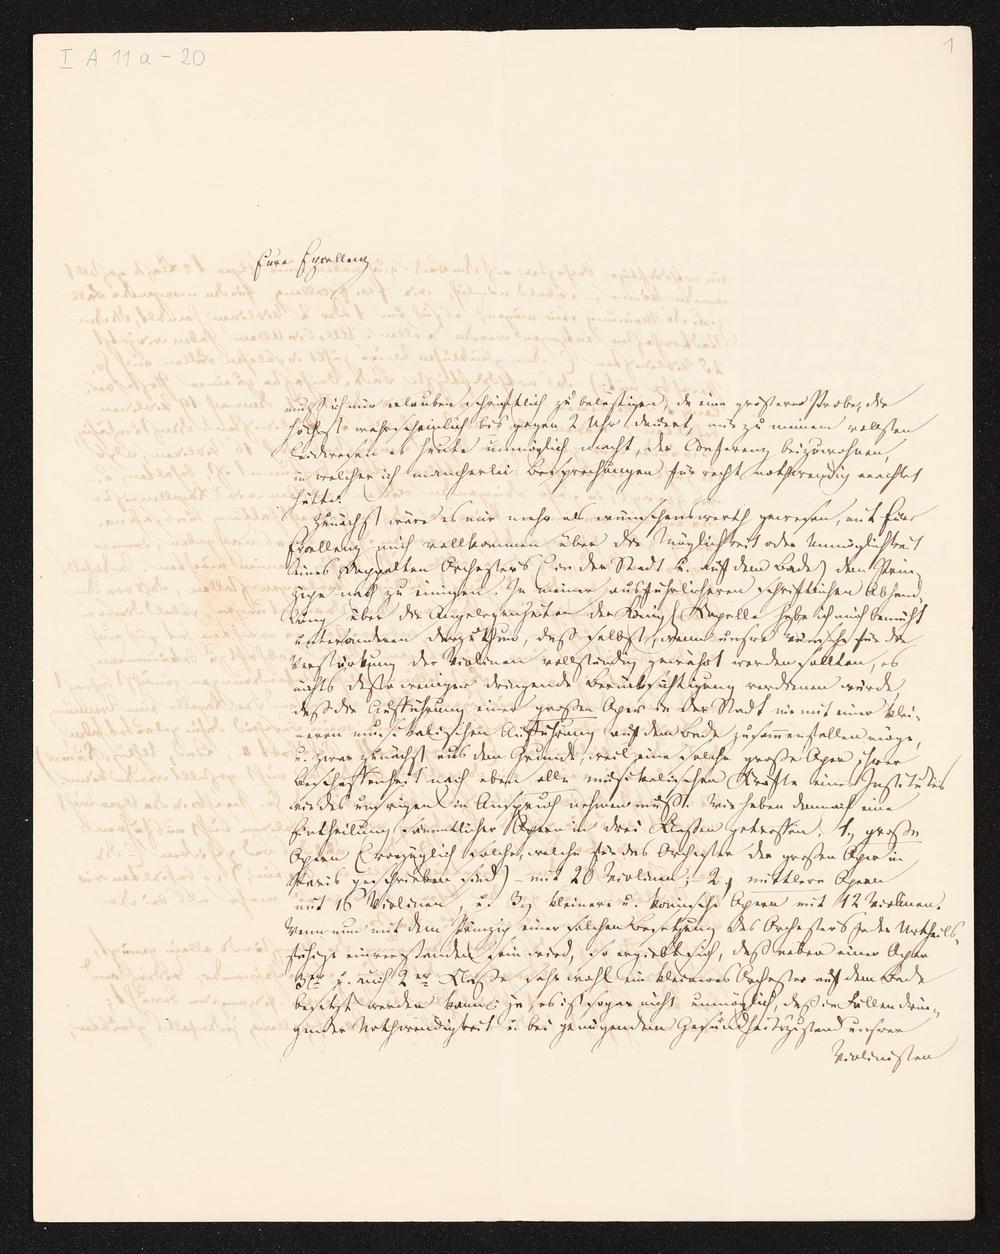 I A 11 a – 20
1
Eure Excellenz
muß ich mir erlauben schriftlich zu belästigen, da eine größere Probe, die
höchst wahrscheinlich bis gegen 2 Uhr dauert, mir zu meinem vollsten
Leidwesen es heute unmöglich macht, der Conferenz beizuwohnen,
in welcher ich mancherlei Besprechungen für recht nothwendig erachtet
hätte.
Zunächst wäre es mir mehr als wünschenswerth gewesen, mit Eurer
Excellenz mich vollkommen über die Möglichkeit oder Unmöglichkeit
eines doppelten Orchesters (in der Stadt u. auf dem Bade) dem Prin-
zipe nach zu einigen. In meiner ausführlicheren schriftlichen Abhand-
lung über die Angelegenheiten der Königl. Kapelle habe ich mich bemüht
unter anderen darzuthun, daß selbst, wenn unsre Wünsche für die
Verstärkung der Violinen vollständig gewährt werden sollten, es
nichts desto weniger dringende Berücksichtigung verdienen würde,
daß die Aufführung einer großen Oper in der Stadt nie mit einer klei-
neren musikalischen Aufführung auf dem Bade zusammenfallen möge,
u. zwar zunächst aus dem Grunde, weil eine solche große Oper ihrer
Beschaffenheit nach eben alle musikalischen Kräfte eines Institutes
wie des unsrigen in Anspruch nehmen muß. Wir haben demnach eine
Eintheilung sämmtlicher Opern in drei Klassen getroffen: 1, große
Opern (vorzüglich solche, welche für das Orchester der großen Oper in
Paris geschrieben sind) – mit 20 Violinen; – 2, mittlere Opern
mit 16 Violinen, u. 3, kleinere u. komische Opern mit 12 Violinen.
Wenn nun mit dem Prinzip einer solchen Besetzung des Orchesters jeder Urtheils-
fähige einverstanden sein wird, so ergiebt sich, daß neben einer Oper
3ter u. auch 2ter Klasse sehr wohl ein kleineres Orchester auf dem Bade
besetzt werden kann: ja, es ist sogar nicht unmöglich, daß in Fällen drin-
gender Nothwendigkeit u. bei genügendem Gesundheitszustand unsrer
Violinisten